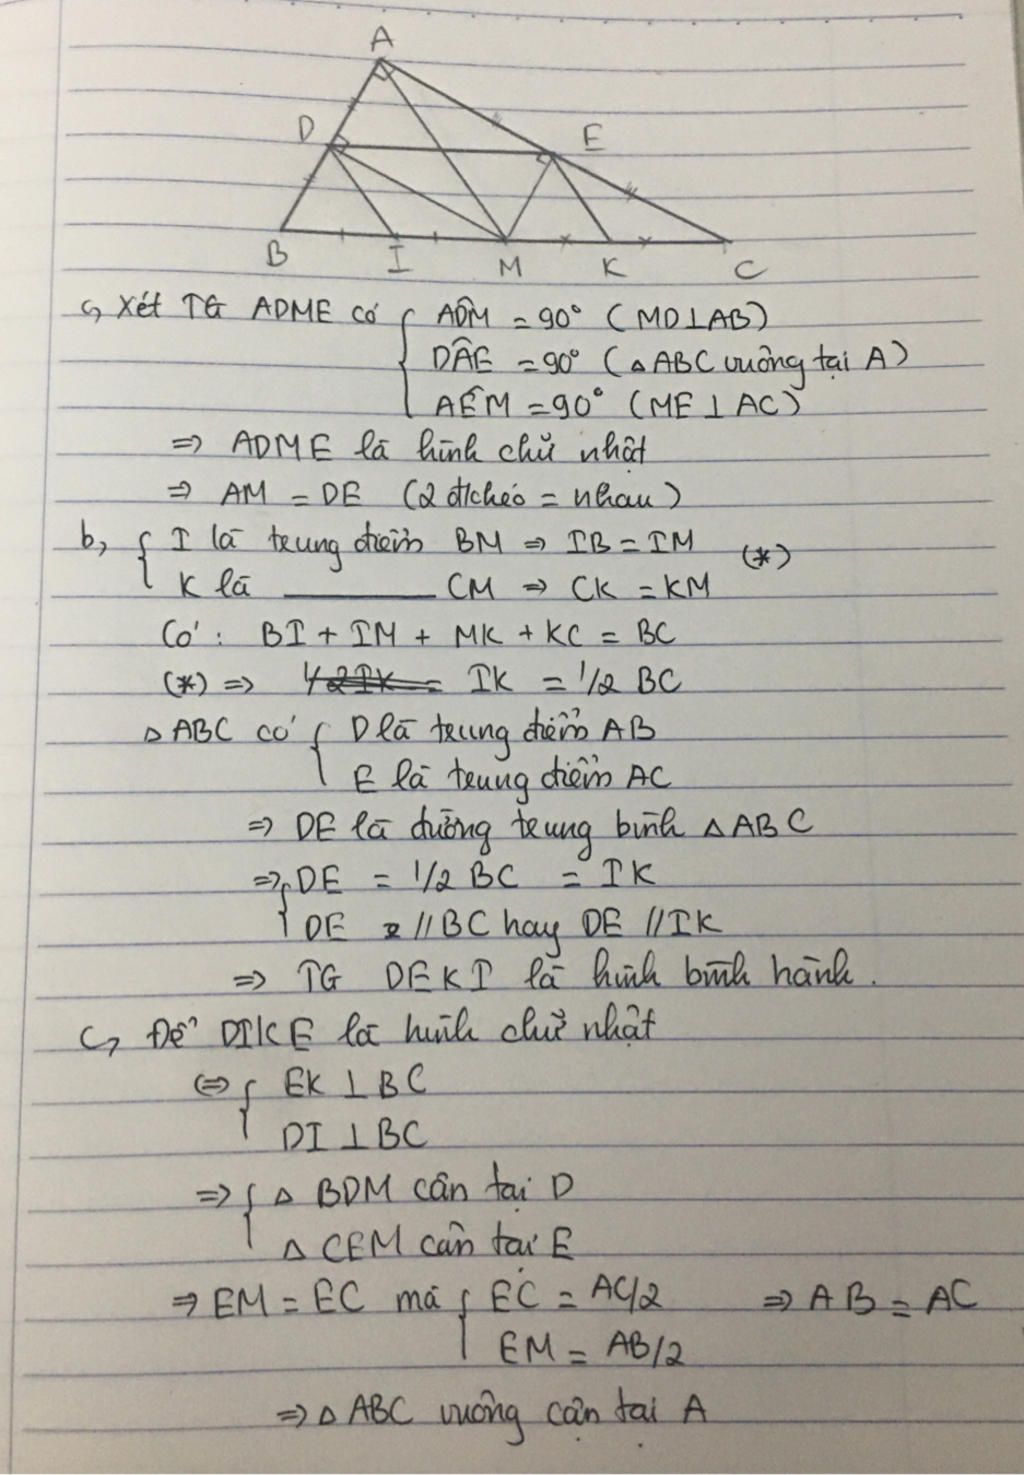 A
D
E
B
I
M
K
C
a, Xét TG ADME có { AD̂M = 90° (MD⊥AB)
DÂE = 90° (△ABC vuông tại A)
AÊM = 90° (ME⊥AC)
⇒ ADME là hình chữ nhật
⇒ AM = DE (2 đ/chéo = nhau)
b, { I là trung điểm BM ⇒ IB = IM
(*)
K là ——— CM ⇒ CK = KM
Có: BI + IM + MK + KC = BC
(*) ⇒ IK = 1/2 BC
△ABC có { D là trung điểm AB
E là trung điểm AC
⇒ DE là đường trung bình △ABC
⇒ { DE = 1/2 BC = IK
DE // BC hay DE // IK
⇒ TG DEKI là hình bình hành.
c, Để DIKE là hình chữ nhật
⇔ { EK ⊥ BC
DI ⊥ BC
⇒ { △ BDM cân tại D
△ CEM cân tại E
⇒ EM = EC mà { EC = AC/2 ⇒ AB = AC
EM = AB/2
⇒ △ ABC vuông cân tại A